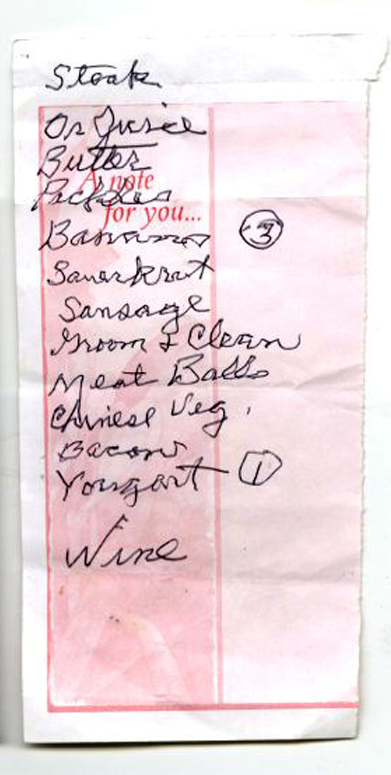 Steak
Or Jusice
Butter
A note
Pickles
for you...
Bananas 3
Sauerkraut
Sausage
Groom & Clean
Meat Balls
Chinese Veg.
Bacon
Yougart - 1
Wine